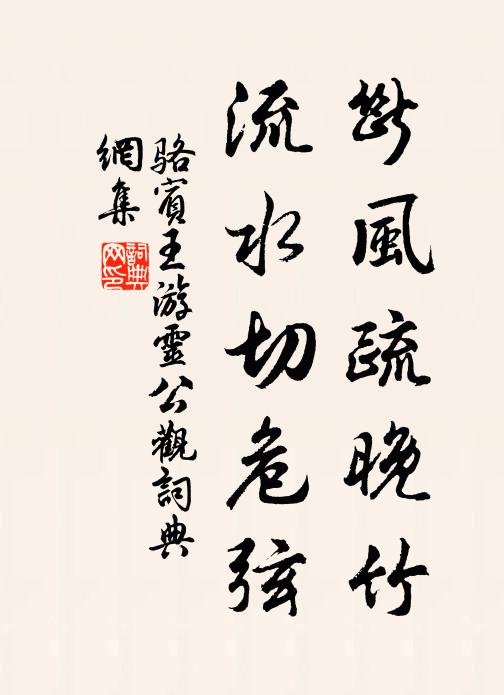 斷風疏晚竹
流水切危弦
駱賓王游靈公觀詞典
網集
詞典
网印